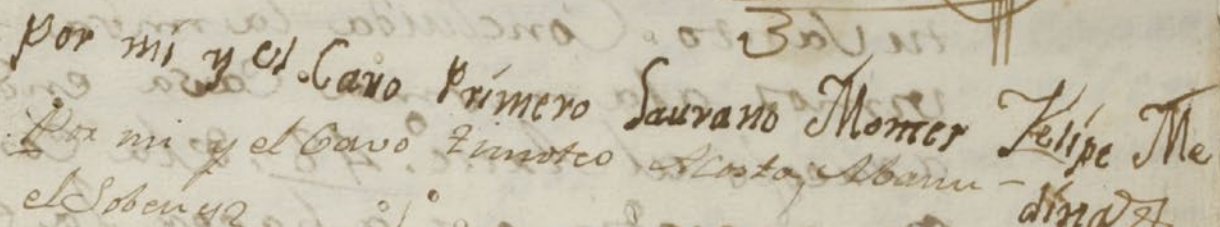 Por mi y el Cavo Primero Laurano Momer Felipe Me
dina
Por mi y el Cavo Timoteo Acosta, Manu-
el Soberuz